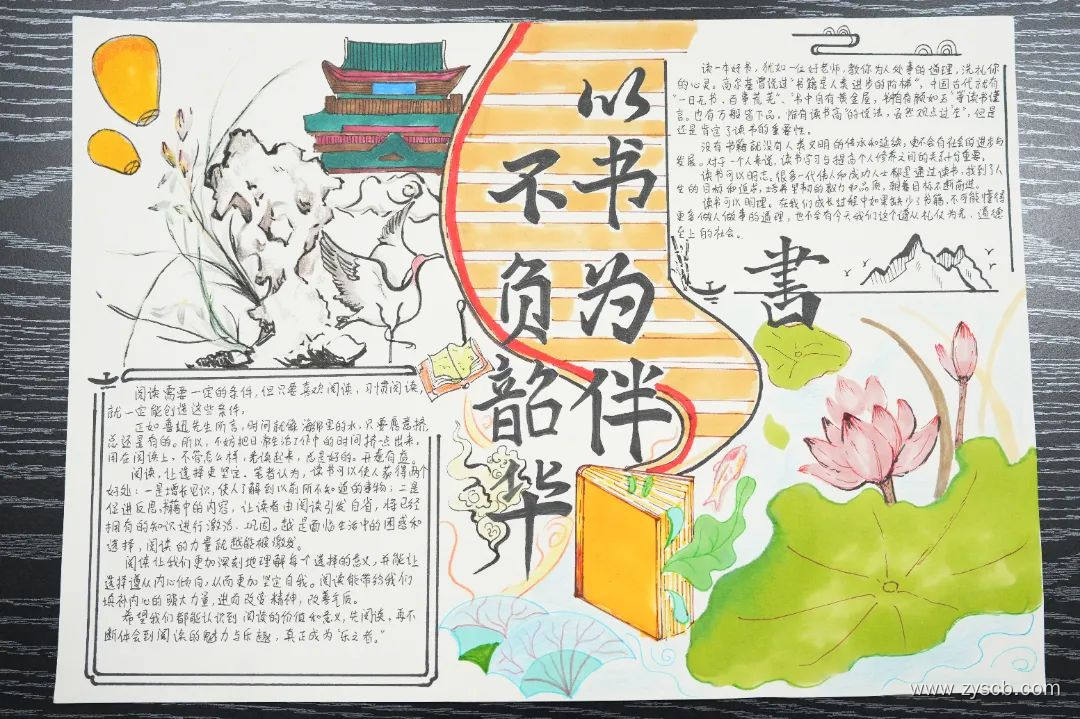 以书为伴
不负韶华
書
读一本好书，犹如一位好老师，教你为人处事的道理，洗礼你
的心灵。高尔基曾说过"书籍是人类进步的阶梯"，中国古代就有
"一日无书，百事荒芜"、"书中自有黄金屋，书中自有颜如玉"等读书谨
言。也有万般皆下品，惟有读书高"的说法，虽然观点过左"，但是
还是肯定了读书的重要性。
没有书籍就没有人类文明的传承和延续，更不会有社会的进步与
发展。对于一个人来说，读书学习与提高个人修养之间的关系十分重要。
读书可以明志。很多一代伟人和成功人士都是通过读书，找到了人
生的目标和追求，培养坚韧的毅力和品质，朝着目标不断前进。
读书可以明理。在我们成长过程中如果缺少了书籍，不可能懂得
更多做人做事的道理，也不会有今天我们这个遵从礼仪为先，道德
至上的社会。
阅读需要一定的条件，但只要喜欢阅读，习惯阅读，
就一定能创造这些条件。
正如鲁迅先生所言，时间就像海绵里的水，只要愿意挤，
总还是有的。所以，不妨把日常生活工作中的时间挤一点出来，
用在阅读上，不管怎么样，老读起来，总是好的。开卷有益。
阅读，让选择更坚定。笔者认为，读书可以使人获得两个
好处：一是增长见识，使人了解到以前所不知道的事物；二是
促进反思，书籍中的内容，让读者由阅读引发自省，将已经
拥有的知识进行激活、巩固。越是面临生活中的困惑和
选择，阅读的力量就越能被激发。
阅读让我们更加深刻地理解每个选择的意义，并能让
选择遵从内心倾向，从而更加坚定自我。阅读能带给我们
填补内心的强大力量，进而改变精神，改善气质。
希望我们都能认识到阅读的价值和意义，先阅读，再不
断体会到阅读的魅力与乐趣，真正成为"乐之者。"
www.zyscb.com